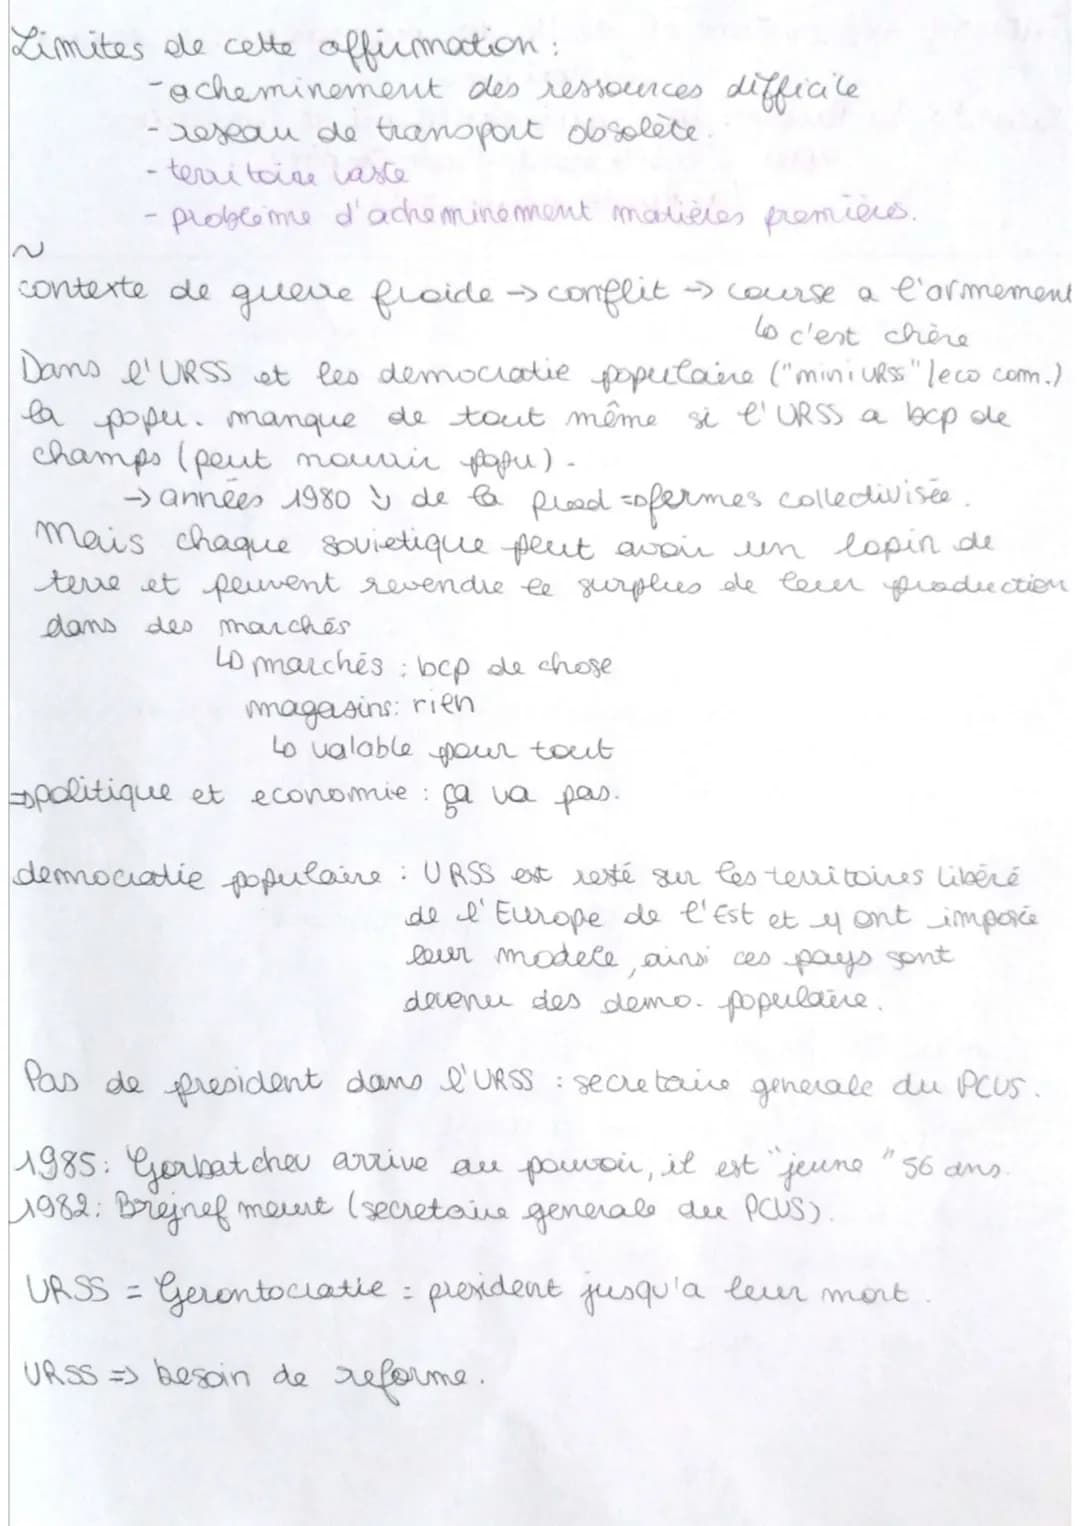 Limites de cette affirmation :
- acheminement des ressources difficile
- reseau de transport obsolète.
- territoire vaste
- problème d'acheminement matières premières.
~
contexte de guerre froide → conflit → course a l'armement
↳ c'est chère
Dans l'URSS et les democratie populaire ("mini URSS"/eco com.)
la popu. manque de tout même si l'URSS a bcp de
champs (peut nourrir popu).
→ années 1980 ↘ de la prod ⇒ fermes collectivisée.
Mais chaque sovietique peut avoir un lopin de
terre et peuvent revendre le surplus de leur production
dans des marchés
↳ marchés : bcp de chose
magasins: rien
↳ valable pour tout
⇒ politique et economie : ça va pas.
democratie populaire : URSS est resté sur les territoires libéré
de l'Europe de l'Est et y ont imposé
leur modele, ainsi ces pays sont
devenu des demo. populaire.
Pas de president dans l'URSS : secretaire generale du PCUS.
1985: Gorbatchev arrive au pouvoir, il est "jeune" 56 ans.
1982: Brejnef meurt (secretaire generale du PCUS).
URSS = Gerontocratie = president jusqu'a leur mort.
URSS => besoin de reforme.